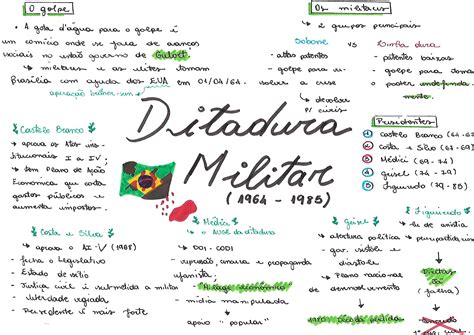 O golpe
• A gota d'água para o golpe é
um comício onde se fala de avanços
sociais no então governo de Goulart
↳ militares e as elites tomam
Brasília com ajuda dos EUA em 01/04/64.
operação brother-sam
Os militares
↳ 2 grupos principais
Sorbone vs Linha dura
- altas patentes
- golpe para
resolver a crise
↳ devolver
p/ civis
- patentes baixas
- golpe para tomar
o poder
Ditadura
Militar
(1964 - 1985)
Presidentes
1 Castelo Branco (64-67)
2 Costa e Silva (64-69)
3 Médici (69-74)
4 Geisel (74-79)
5 Figueiredo (79-85)
Castelo Branco
↳ aprova os atos ins-
titucionais I a IV;
↳ tem Plano de Ação
Econômica que corta
gastos públicos e
aumenta impostos.
Costa e Silva
↳ aprova o AI-V (1968)
- fecha o Legislativo
- Estado de sítio
- Justiça civil é submetida a militar
- liberdade vigiada
- Presidente é mais forte
Médici
↳ o auge da ditadura
- DOI-CODI
- repressão, censura e propaganda
ufanista;
- milagre econômico
- mídia manipulada
apoio "popular"
Geisel
- abertura política
- gar. vistel e
diástole
- Plano nacional
de desenvolvimento
Figueiredo
↳ volta do
pluripartidarismo
Diretas
Já
(falha)